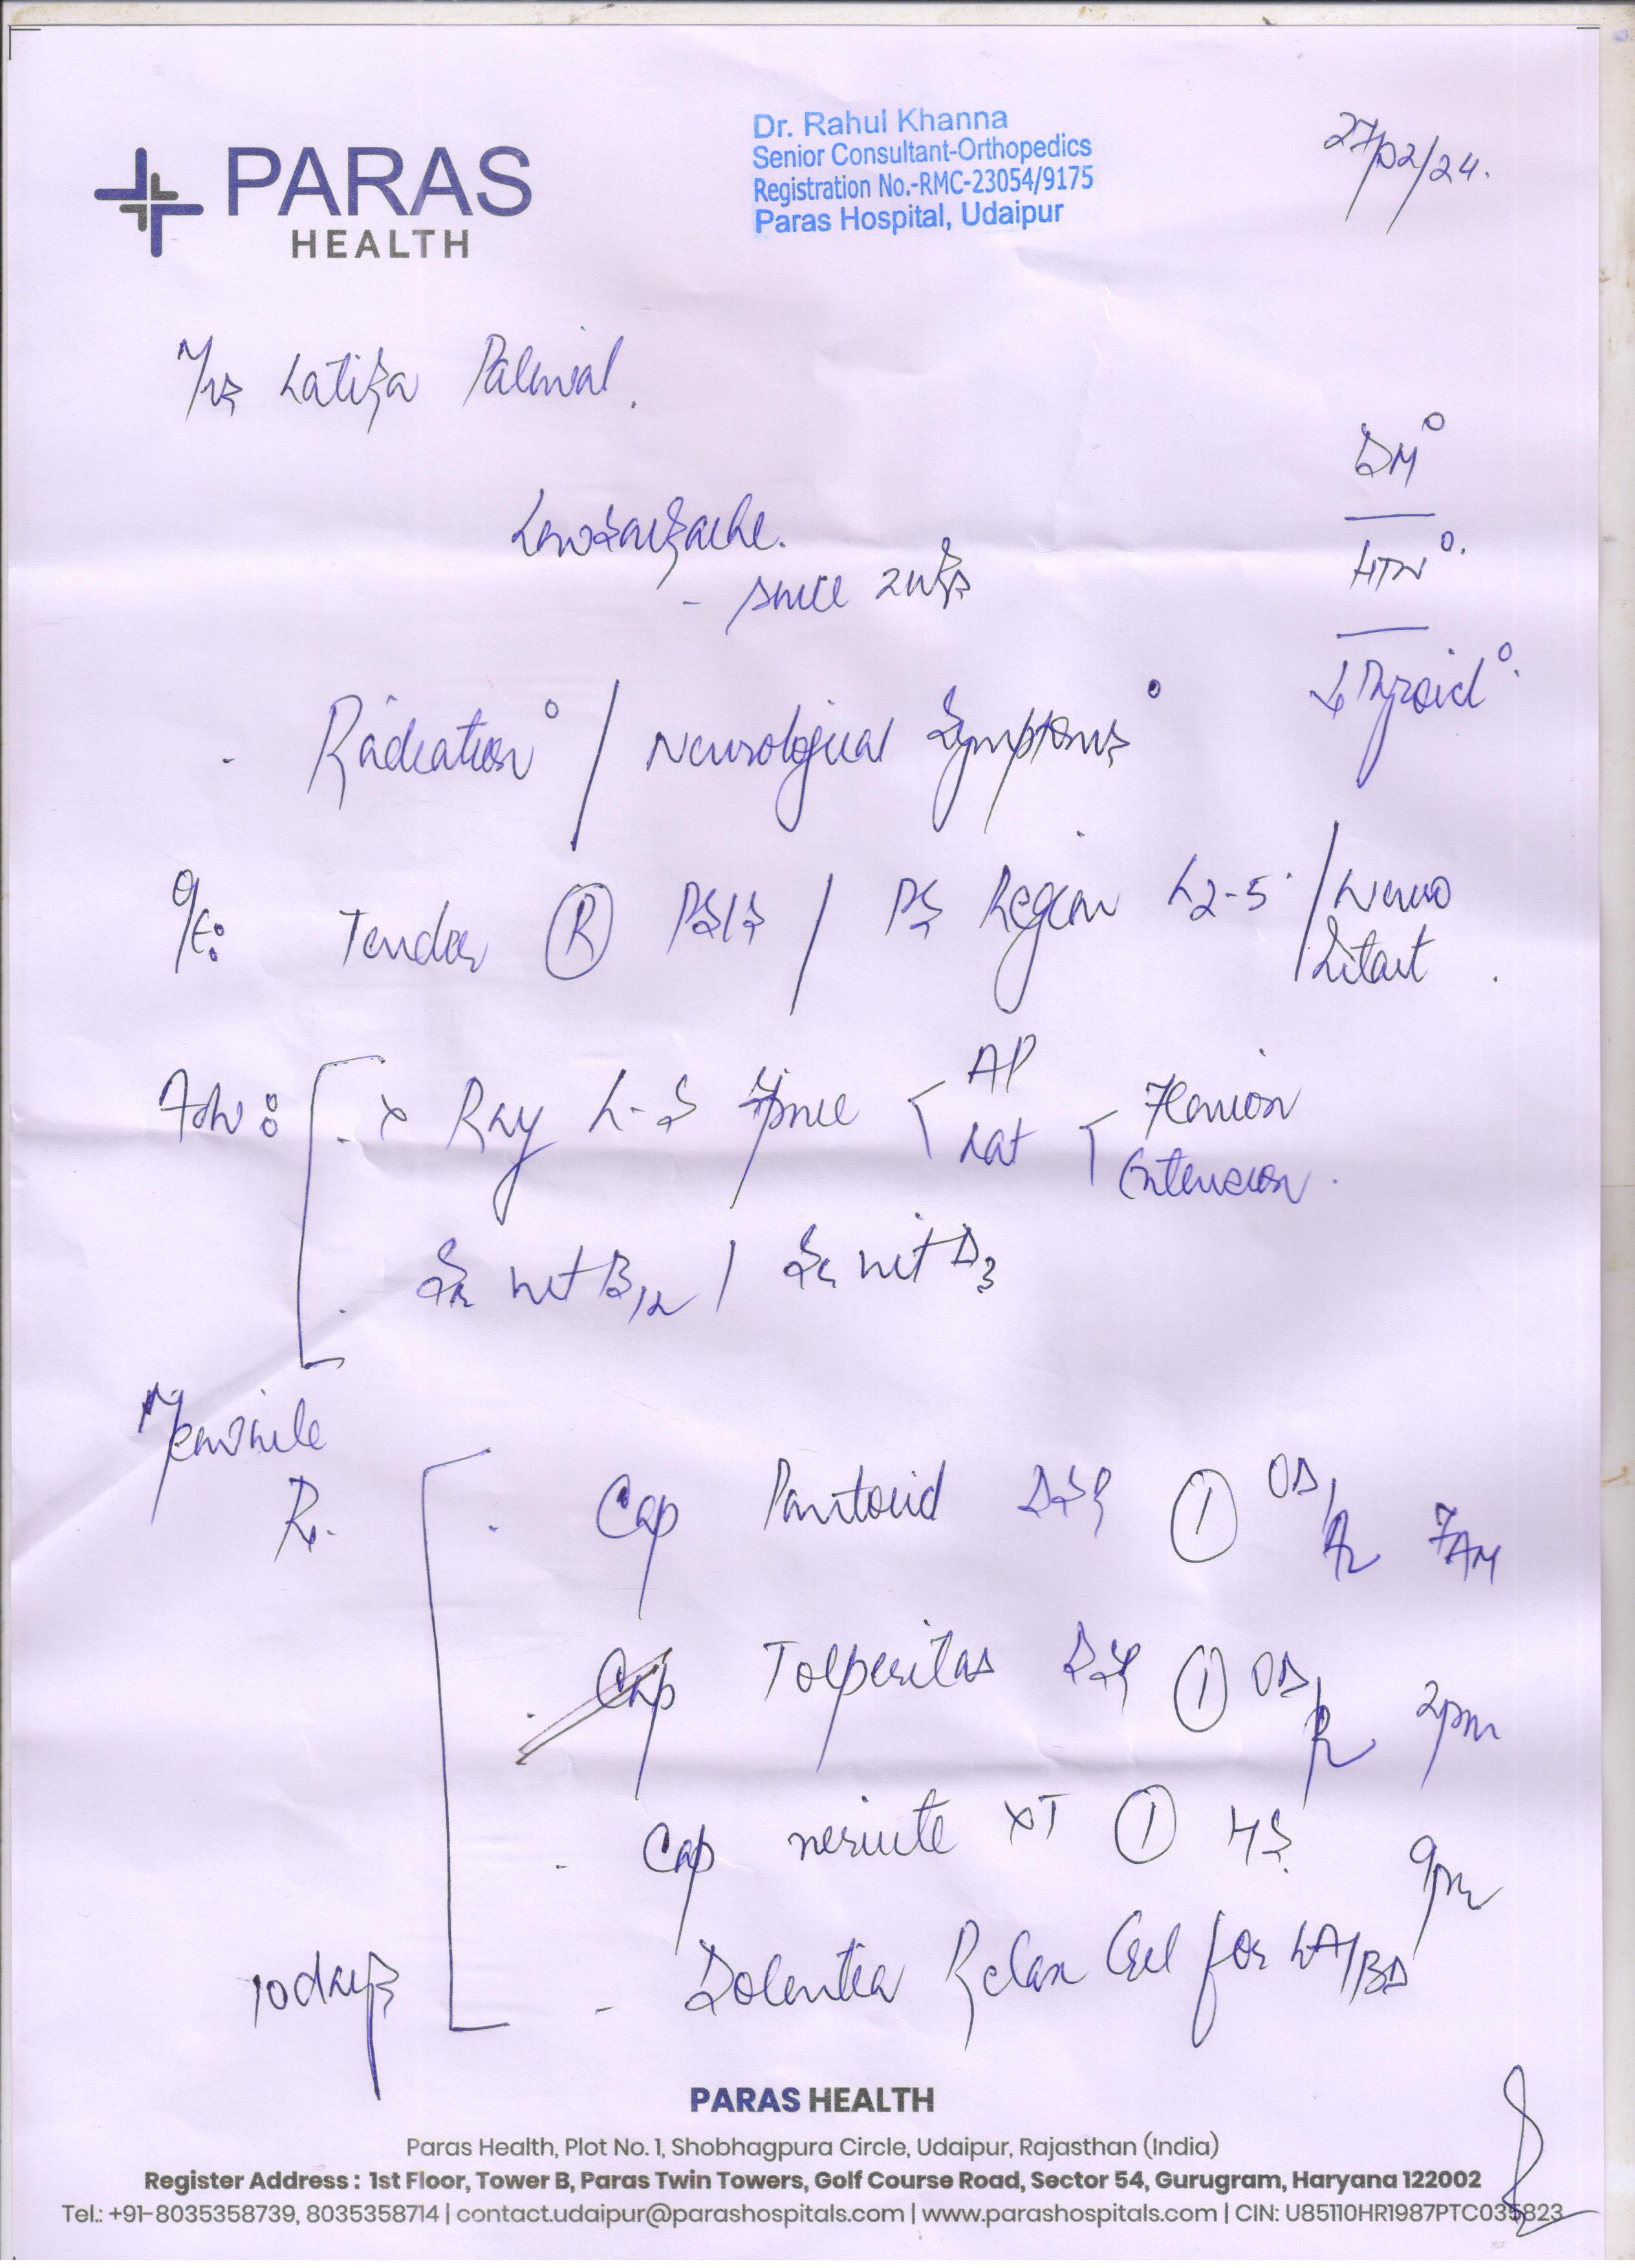 PARAS
HEALTH
Dr. Rahul Khanna
Senior Consultant-Orthopedics
Registration No.-RMC-23054/9175
Paras Hospital, Udaipur
27/02/24.
Mrs Latika Paliwal.
DM°
Low backache.
HTN°.
- since 2 wks
Thyroid°.
- Radiation° / Neurological Symptoms°
O/E: Tender (R) PSIS / PS Region L2-5 / Neuro
Intact.
Adv: . X Ray L-S Spine AP
Lat Flexion
Extension.
. Sr Vit B12 / Sr Vit D3
Menwhile
Rx. . Cap Pantocid DSR (1) OD/ 7AM
. Cap Tolperitas (1) OD/ 2pm
- Cap XT (1) HS. 9pm
10 days - Relax Gel for LA/BD
PARAS HEALTH
Paras Health, Plot No. 1, Shobhagpura Circle, Udaipur, Rajasthan (India)
Register Address : 1st Floor, Tower B, Paras Twin Towers, Golf Course Road, Sector 54, Gurugram, Haryana 122002
Tel.: +91-8035358739, 8035358714 | contact.udaipur@parashospitals.com | www.parashospitals.com | CIN: U85110HR1987PTC035823